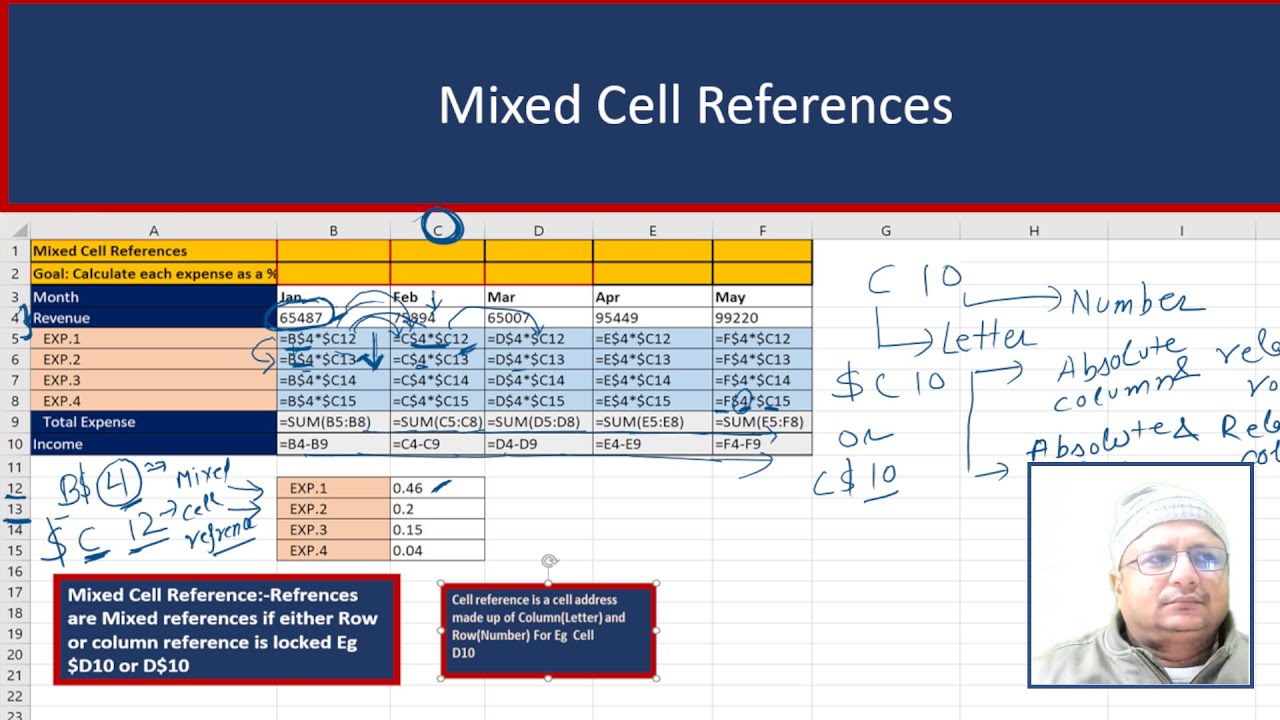 Mixed Cell References
A B C D E F G H I
1 Mixed Cell References
2 Goal: Calculate each expense as a %
3 Month Jan Feb Mar Apr May
4 Revenue 65487 75894 65007 95449 99220
5 EXP.1 =B$4*$C12 =C$4*$C12 =D$4*$C12 =E$4*$C12 =F$4*$C12
6 EXP.2 =B$4*$C13 =C$4*$C13 =D$4*$C13 =E$4*$C13 =F$4*$C13
7 EXP.3 =B$4*$C14 =C$4*$C14 =D$4*$C14 =E$4*$C14 =F$4*$C14
8 EXP.4 =B$4*$C15 =C$4*$C15 =D$4*$C15 =E$4*$C15 =F$4*$C15
9 Total Expense =SUM(B5:B8) =SUM(C5:C8) =SUM(D5:D8) =SUM(E5:E8) =SUM(F5:F8)
10 Income =B4-B9 =C4-C9 =D4-D9 =E4-E9 =F4-F9
11
12 EXP.1 0.46
13 EXP.2 0.2
14 EXP.3 0.15
15 EXP.4 0.04
16
17
18
19
20
21
22
23
B$4 Mixed
$C 12 cell
refrence
C 10
Number
Letter
$C 10 Absolute
column &
OR
Absolute &
C$10
Mixed Cell Reference:-Refrences
are Mixed references if either Row
or column reference is locked Eg
$D10 or D$10
Cell reference is a cell address
made up of Column(Letter) and
Row(Number) For Eg Cell
D10